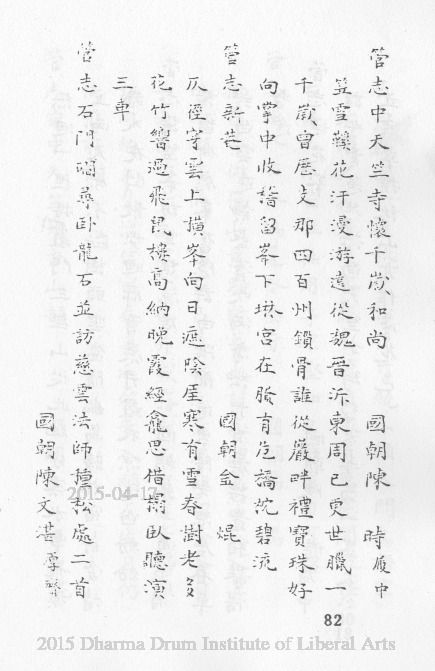 管志中天竺寺懷千歲和尚 國朝陳 時履中
笠雪鞵花汗漫游遠從魏晉泝東周已更世臘一
千歲曾歷支那四百州鎖骨誰從巖畔禮寶珠好
向掌中收 留峯下琳宮在 有 橋 碧流
管志新菴 國朝金 焜
仄徑穿雲上橫峯向日遮陰厓寒有雪春樹老多
花竹響過飛鼠樓高納晚霞經龕思借榻臥聽演
三車
管志石門澗尋臥龍石並訪慈雲法師種松處二首
國朝陳文
2015-04-17
82
2015 Dharma Drum Institute of Liberal Arts